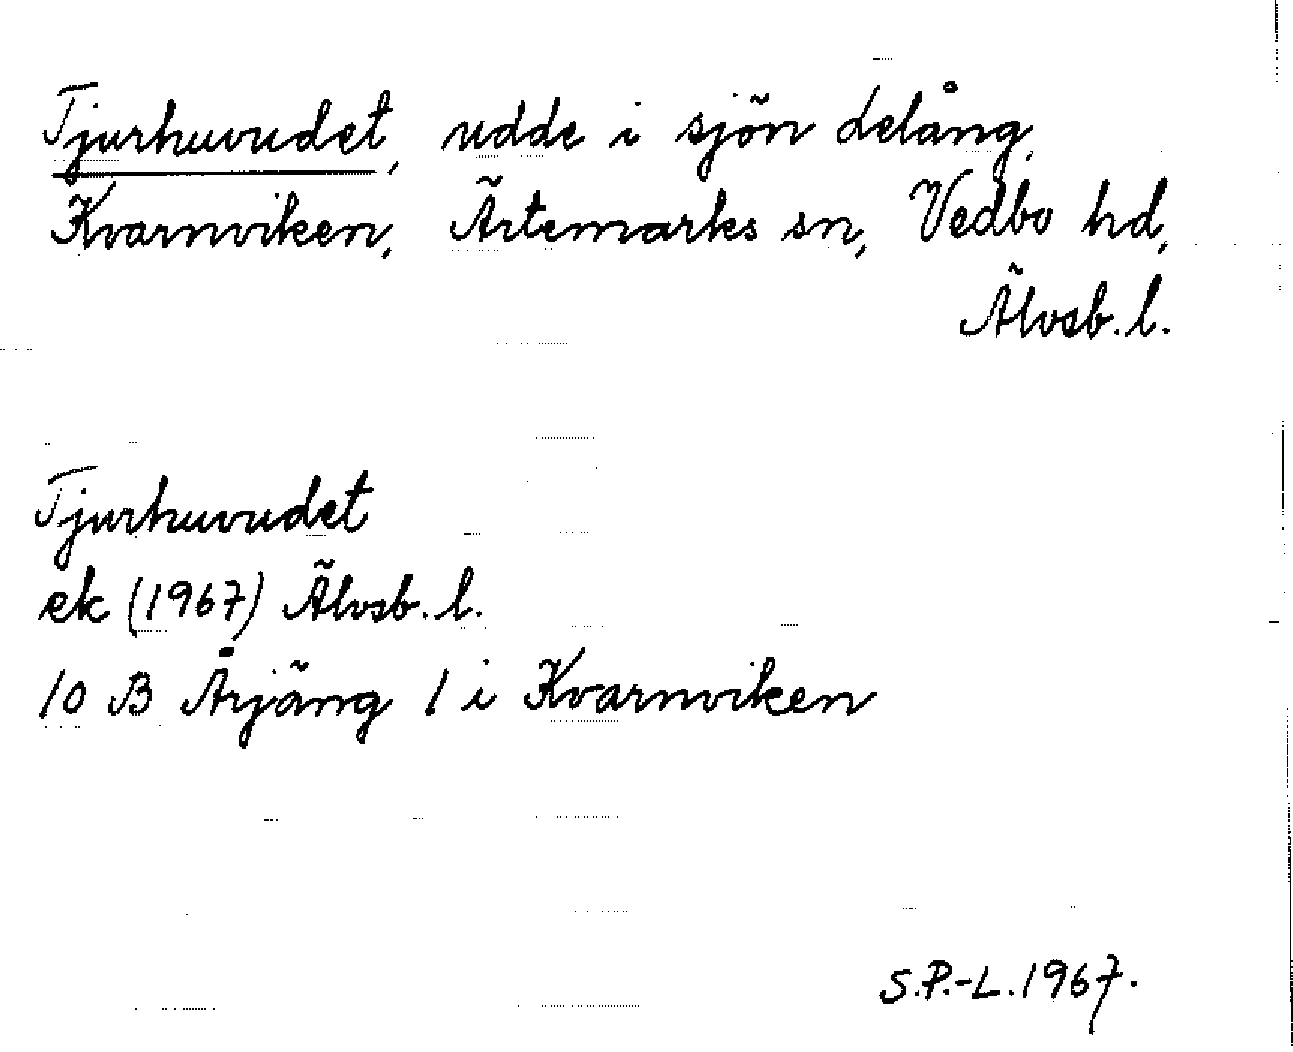 Tjurhuvudet, udde i sjön Lelång,
Kvarnviken, Ärtemarks sn, Vedbo hd,
Älvsb. l.
Tjurhuvudet
ek (1967) Älvsb. l.
10 B Årjäng 1 i Kvarnviken
S.P.-L. 1967.